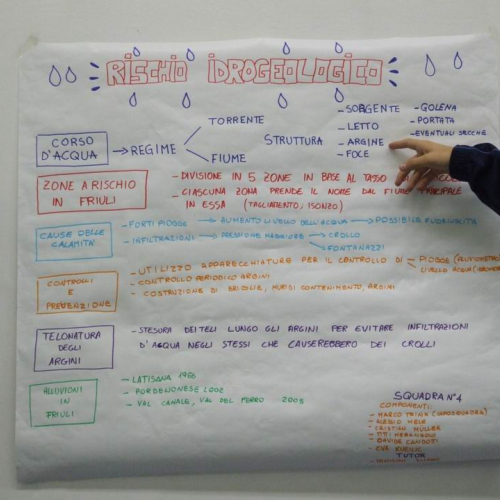 RISCHIO IDROGEOLOGICO
CORSO D'ACQUA
REGIME
TORRENTE
FIUME
STRUTTURA
- SORGENTE
- LETTO
- ARGINE
- FOCE
- GOLENA
- PORTATA
- EVENTUALI SECCHE
ZONE A RISCHIO
IN FRIULI
- DIVISIONE IN 5 ZONE IN BASE AL TASSO DI
- CIASCUNA ZONA PRENDE IL NOME DAL FIUME PRINCIPALE
IN ESSA (TAGLIAMENTO, ISONZO)
CAUSE DELLE
CALAMITA'
- FORTI PIOGGE → AUMENTO LIVELLO DELL'ACQUA → POSSIBILE FUORIUSCITA
- INFILTRAZIONI → PRESSIONE MAGGIORE → CROLLO
→ FONTANAZZI
CONTROLLI
E
PREVENZIONE
- UTILIZZO APPARECCHIATURE PER IL CONTROLLO DI
- PIOGGE
- LIVELLO ACQUA
- CONTROLLO PERIODICO ARGINI
- COSTRUZIONE DI BRIGLIE, MURI DI CONTENIMENTO, ARGINI
TELONATURA
DEGLI
ARGINI
- STESURA DEI TELI LUNGO GLI ARGINI PER EVITARE INFILTRAZIONI
D'ACQUA NEGLI STESSI CHE CAUSEREBBERO DEI CROLLI
ALLUVIONI
IN
FRIULI
- LATISANA 1966
- PORDENONESE 2002
- VAL CANALE, VAL DEL FERRO 2003
SQUADRA N°4
COMPONENTI:
- MARCO (CAPOSQUADRA)
- ALESSIO
- CRISTIAN MÜLLER
- DAVIDE
- EVA
TUTOR